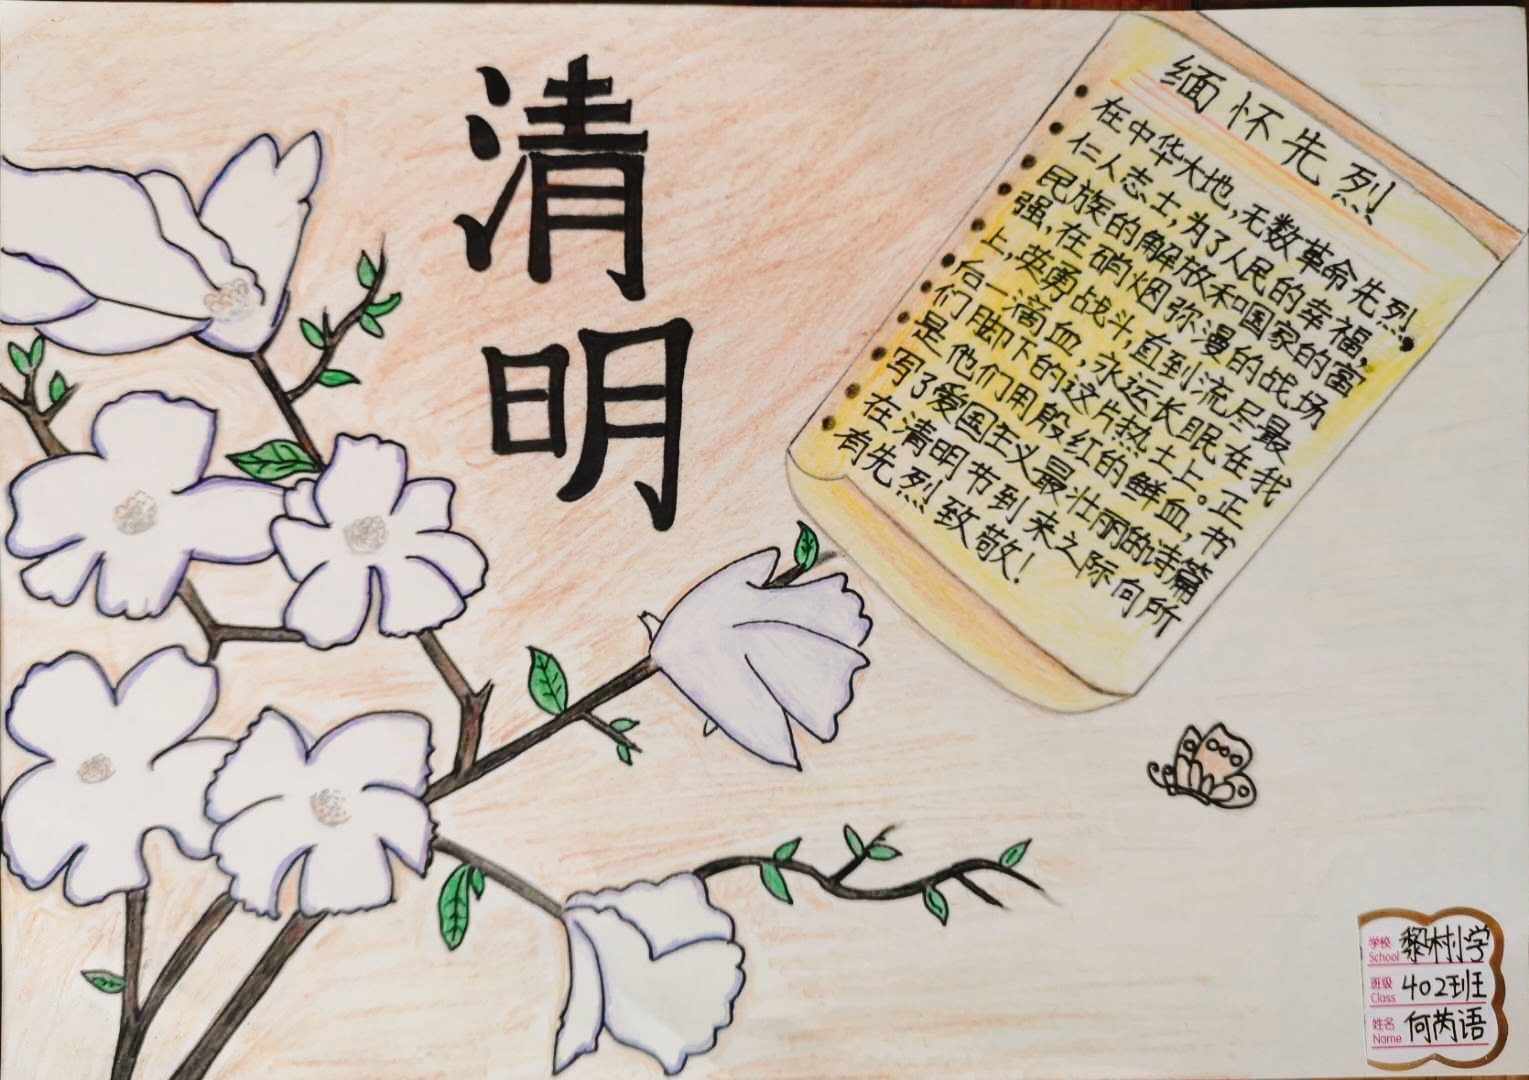 清明
缅怀先烈
在中华大地，无数革命先烈，
仁人志士，为了人民的幸福，
民族的解放和国家的富
强，在硝烟弥漫的战场
上，英勇战斗，直到流尽最
后一滴血，永远长眠在我
们脚下的这片热土上。正
是他们用殷红的鲜血，书
写了爱国主义最壮丽的诗篇
在清明节到来之际向所
有先烈致敬！
学校 School 黎村小学
班级 Class 402班
姓名 Name 何芮语